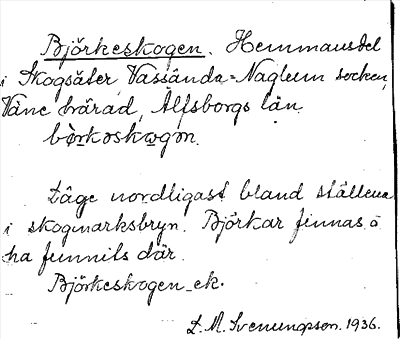 Björkeskogen. Hemmansdel
i Skogsäter, Vassända-Naglum socken,
Väne härad, Älfsborgs län.
Läge nordligast bland ställena
i skogmarksbryn. Björkar finnas o
ha funnits där.
Björkeskogen -ek.
L. M. Svenungsson. 1936.